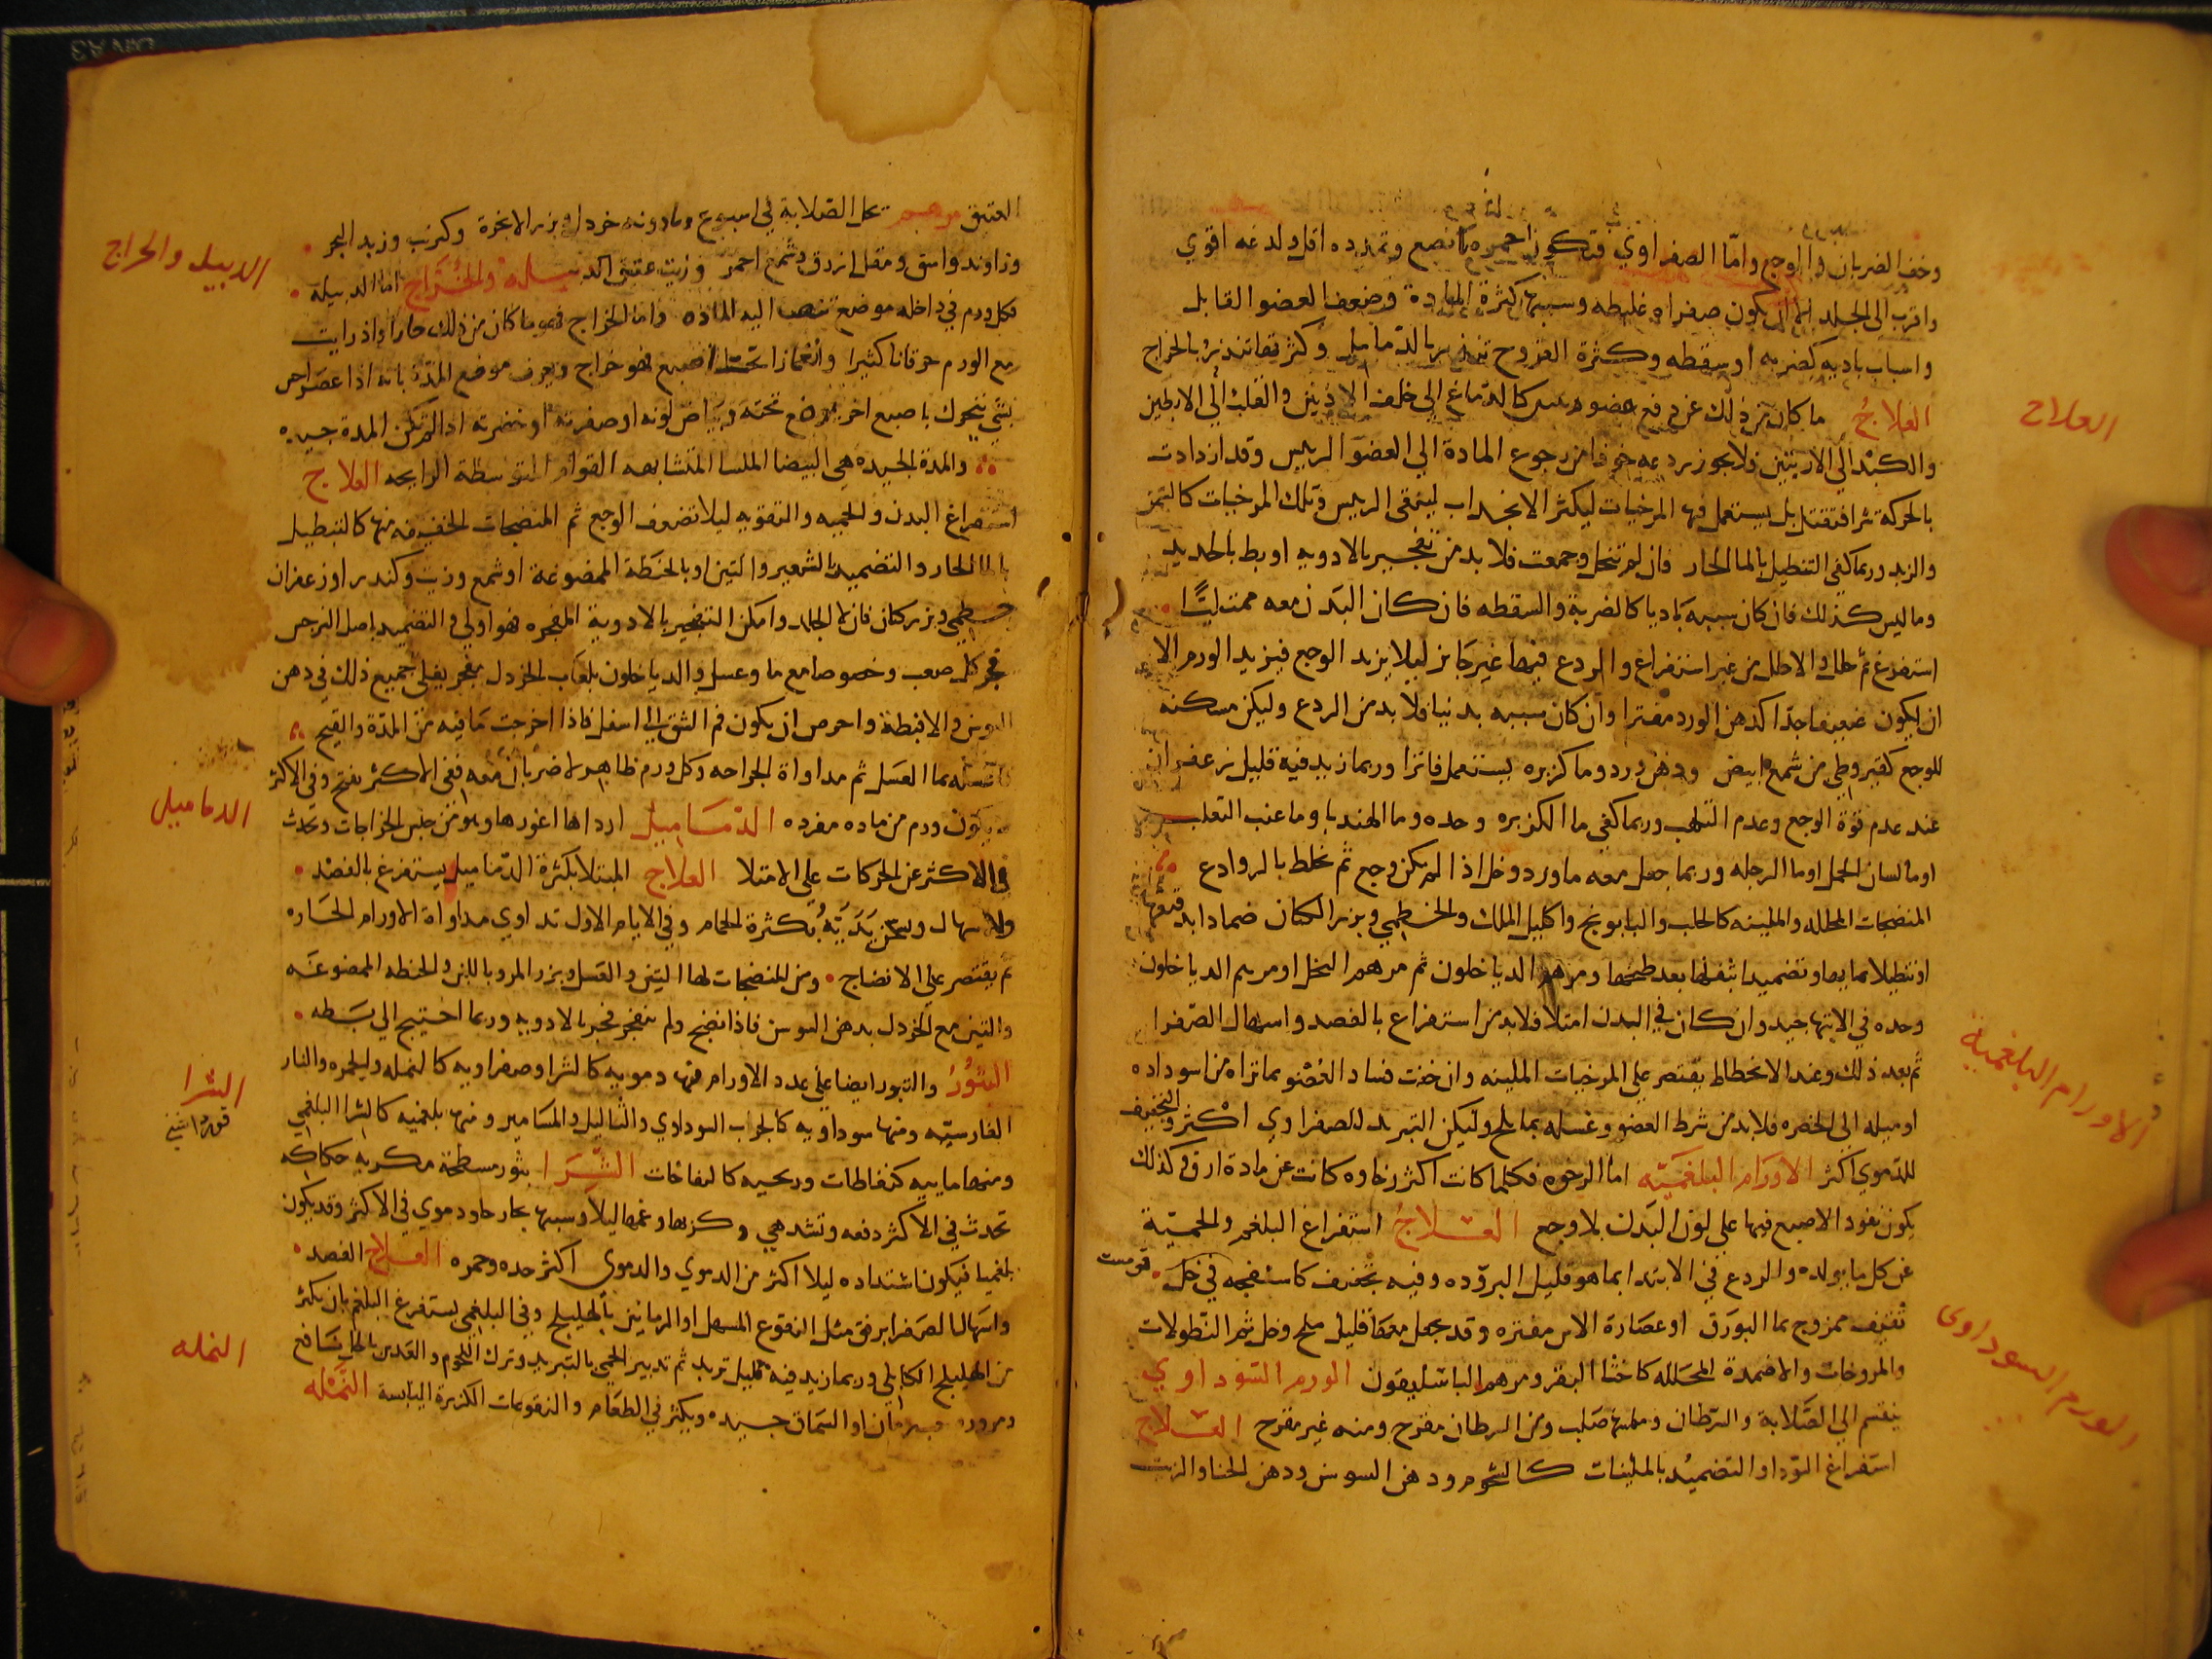 وخف الضربان والوجع واما الصفراوي فتكون احمره ناصع وتمدده اقل ولدغه اقوي
واقرب الى الجلد الا ان يكون صفراه غليظه وسببها كثرة المادة وضعف العضو القابل
واسباب باديه كضربه او سقطه وكثرة القروح تنذر بالدماميل وكثرتها تنذر بالخراج
العلاج ما كان من ذلك عن دفع عضو رييس كالدماغ الي خلف الاذنين والقلب الي الابطين
العلاج
والكبد الي الاربيتين فلا يجوز ردعه خوفا من رجوع المادة الي العضو الرييس وقد ازدادت
بالحركة شرا فتقتل بل يستعمل فيها المرخيات ليكثر الانجداب لينقى الرييس وتلك المرخيات كالتمر
والزبد وربما كفي التنطيل بالما الحار فان لم تتحلل وجمعت فلا بد من تفجير بالادويه او بط بالحديد
وما ليس كذلك فان كان سببه باديا كالضربة والسقطه فان كان البدن معه ممتليًا
استفرغ ثم حلل والا حلل من غير استفراغ والردع فيها غير جايز ليلا يزيد الوجع فيزيد الورم الا
ان يكون ضعيفا جدا كدهن الورد مفترا وان كان سببه بدنيا فلا بد من الردع وليكن مسكنه
للوجع كقيروطي من شمع ابيض ودهن ورد وما كزبره يستعمل فاترا وربما زيد فيه قليل زعفران
عند عدم قوة الوجع وعدم التلهب وربما كفي ما الكزبره وحده وما الهندبا وما عنب الثعلب
او ما لسان الحمل او ما الرجله وربما جعل معه ماورد وخل اذا لم يكن وجع ثم تخلط بالروادع
المنضجات المحلله والملينه كالحلب والبابونج واكليل الملك والخطمي وبزر الكتان ضمادا بدقيقها
او تنطيلا بمايها وتضميدا بثفلها بعد طبخها ومرهم الدياخلون ثم مرهم النخل او مرهم الدياخلون
وحده في الانتها جيد وان كان في البدن امتلا فلا بد من استفراغ بالفصد واسهال الصفرا
ثم بعد ذلك وعند الانحطاط يقتصر علي المرخيات الملينه وان خفت فساد العضو بما تراه من اسوداده
او ميله الي الخضره فلا بد من شرط العضو وغسله بما ملح وليكن التبريد للصفراوي اكثر والتجفيف
للدموي اكثر الاورام البلغميه اما الرخوه فكلما كانت اكثر رخاوه كانت عن مادة ارق وكذلك
الاورام البلغمية
يكون نفود الاصبع فيها علي لون البدن بلا وجع العلاج استفراغ البلغم والحمية
عن كل ما يولده والردع في الابتدا بما هو قليل البروده وفيه تجفيف كاسفنجه في خل
ثقيف ممزوج بما البورق او عصارة الاس مفتره وقد يجعل معها قليل ملح وخل ثم النطولات
والمروخات والاضمدة المحلله كاخثا البقر ومرهم الباسليقون الورم السوداوي
الورم السوداوى
ينقسم الي الصلابة والسرطان وملمسها صلب ومن السرطان مقرح ومنه غير مقرح العلاج
استفراغ السودا والتضميد بالملينات كالشحوم ودهن السوسن ودهن الحنا والزيت
العتيق مرهم يحل الصلابة في اسبوع وما دونه خردل وبزر الانجرة وكبريت وزبد البحر
وزاوند واشق ومقل ازرق وشمع احمر وزيت عتيق الدبيله والخراج اما الدبيله
الدبيل والخراج
فكل ورم في داخله موضع تنصب اليه الماده واما الخراج فهو ما كان من ذلك حارا واذا رايت
مع الورم حرقانا كثيرا وانغمازا تحت الاصبع فهو خراج ويعرف موضع المدة بانه اذا عصر احس
بشي يتحرك باصبع اخري توضع تحته وبياض لونه او صفرته او خضرته اذا لم تكن المدة جيده
والمدة الجيده هي البيضا الملسا المتشابهه القوام المتوسطة الرايحه العلاج
استفراغ البدن والحميه والتقويه ليلا تضعف الوجع ثم المنضجات الخفيفه منها كالتنطيل
بالما الحار والتضميد بالشعير والتين او بالحنطة الممضوغة او شمع وزيت وكندر او زعفران
وخطمي وبزر كتان فان لان الجلد وامكن التفجير بالادوية المفجره فهو اولي والتضميد باصل النرجس
فجر كل صعب وخصوصا مع ما وعسل والدياخلون بلعاب الخردل مفجر يغلي جميع ذلك في دهن
السوسن والا فبطه واحرص ان يكون فم الشق الي اسفل فاذا اخرجت ما فيه من المدة والقيح
فاغسله بما العسل ثم مداواة الجراحه وكل ورم ظاهر لا ضربان معه ففي الاكثر يقيح وفي الاكثر
يكون ورم من ماده مفرده الدماميل ارداها اغورها وهو من جنس الخراجات وتحدث
الدماميل
في الاكثر عن الحركات علي الامتلا العلاج المبتلا بكثرة الدماميل يستفرغ بالفصد
والاسهال ويسخن بدنه بكثرة الحمام وفي الايام الاول تداوي مداواة الاورام الحاره
ثم يقتصر علي الانضاج ومن المنضجات لها التين والعسل وبزر المرو باللبن والحنطه الممضوغه
والتين مع الخردل بدهن السوسن فاذا نضج ولم ينفجر فجر بالادويه وربما احتيج الي بطه
البثور والبثور ايضا علي عدد الاورام فمنها دمويه كالشرا وصفراويه كالنمله والجمره والنار
الشرا
الفارسيه ومنها سوداويه كالجرب السوداوي والثاليل والمسامير ومنها بلغميه كالشرا البلغمي
ومنها ماييه كنفاطات وريحيه كالنفاخات الشرا بثور مسطحة مكربه حكاكه
تحدث في الاكثر دفعه وتشتد هي وكربها وغمها ليلا وسببها بخار حاد دموي في الاكثر وقد يكون
بلغميا فيكون اشتداده ليلا اكثر من الدموي والدموي اكثر حده وحمره العلاج الفصد
واسهال الصفرا برفق مثل النقوع المسهل او الرمانين بالهليلج وفي البلغمي يستفرغ البلغم بان يكثر
من الهليلج الكابلي وربما زيد فيه قليل تربد ثم تدبير الحمي بالتبريد وترك اللحوم والعدس بالخل نافع
النمله
ومزورة حب رمان او السماق جيده ويكثر في الطعام والنقوعات الكزبرة اليابسة النمله